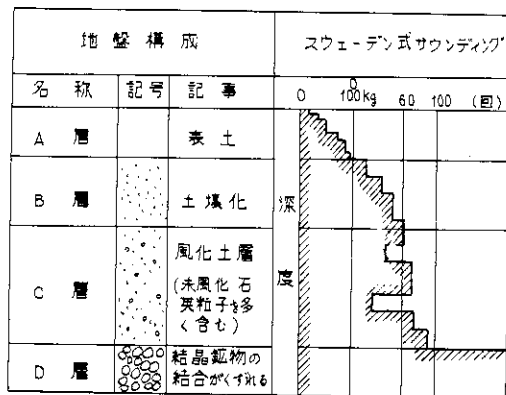 地盤構成
スウェーデン式サウンディング
名称 記号 記事
0 100kg 0 60 100 (回)
A層 表土
B層 土壌化
深度
C層 風化土層
(未風化石
英粒子を多
く含む)
D層 結晶鉱物の
結合がくずれる